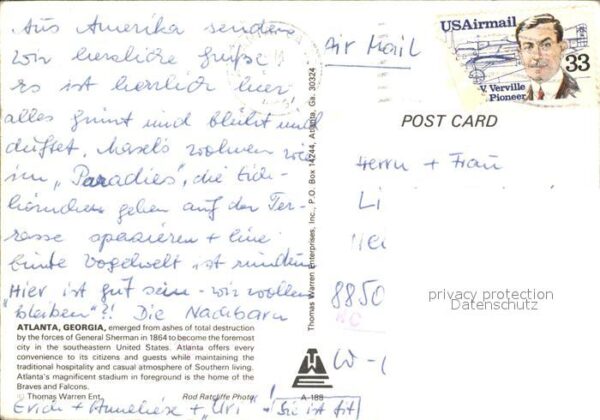 Aus Amerika senden
wir herzliche Grüße
es ist herrlich hier
alles grünt und blüht und
duftet. wohnen wie
im "Paradies", die Eich-
hörnchen gehen auf der Ter-
rasse spazieren + eine
bunte Vogelwelt ist rundum
"Hier ist gut sein - wir wollen
"bleiben"?! Die Nachbarn
Erich + Anneliese + "Uri" ! Sie ist fit
ATLANTA, GEORGIA, emerged from ashes of total destruction
by the forces of General Sherman in 1864 to become the foremost
city in the southeastern United States. Atlanta offers every
convenience to its citizens and guests while maintaining the
traditional hospitality and casual atmosphere of Southern living.
Atlanta's magnificent stadium in foreground is the home of the
Braves and Falcons.
(c) Thomas Warren Ent. Rod Ratcliffe Photo
Thomas Warren Enterprises, Inc., P.O. Box 14244, Atlanta, Ga. 30324
A-188
Air Mail
USAirmail
33
V. Verville
Pioneer
POST CARD
Herrn + Frau
Li
8850
W-
privacy protection
Datenschutz